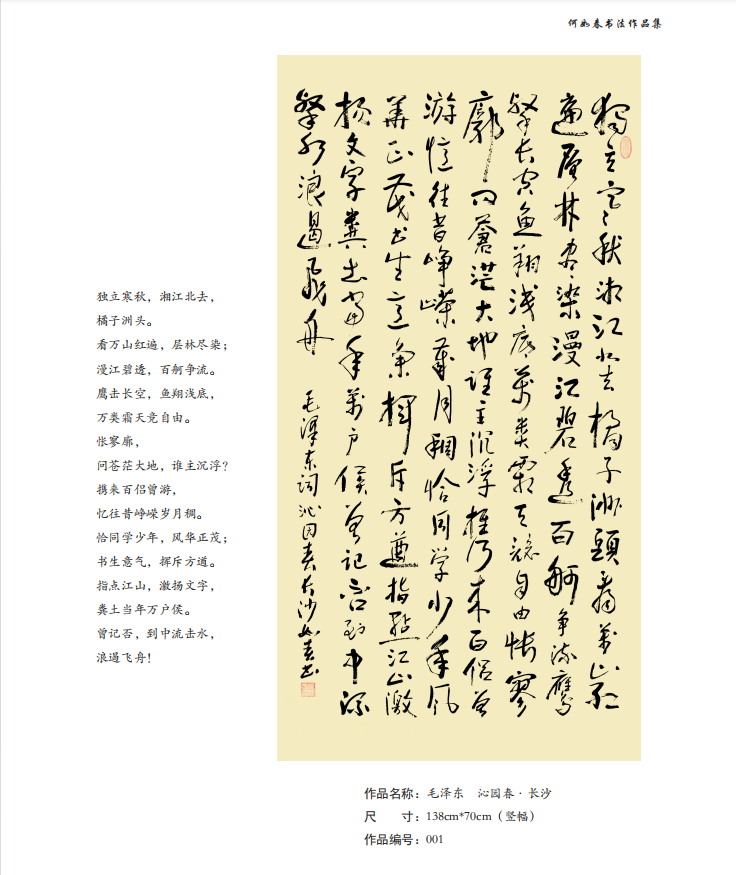 何如春书法作品集
獨立寒秋湘江北去橘子洲頭看萬山紅
遍層林盡染漫江碧透百舸争流鷹
擊長空魚翔淺底萬類霜天競自由悵寥
廓问蒼茫大地誰主沉浮携来百侣曾
游憶往昔峥嵘歲月稠恰同学少年风
華正茂书生意氣揮斥方遒指點江山激
扬文字糞土當年萬户侯曾记否到中流
擊水浪遏飛舟
毛泽东词沁园春长沙如春书
独立寒秋，湘江北去，
橘子洲头。
看万山红遍，层林尽染；
漫江碧透，百舸争流。
鹰击长空，鱼翔浅底，
万类霜天竞自由。
怅寥廓，
问苍茫大地，谁主沉浮？
携来百侣曾游，
忆往昔峥嵘岁月稠。
恰同学少年，风华正茂；
书生意气，挥斥方遒。
指点江山，激扬文字，
粪土当年万户侯。
曾记否，到中流击水，
浪遏飞舟！
作品名称：毛泽东 沁园春·长沙
尺 寸：138cm*70cm（竖幅）
作品编号：001